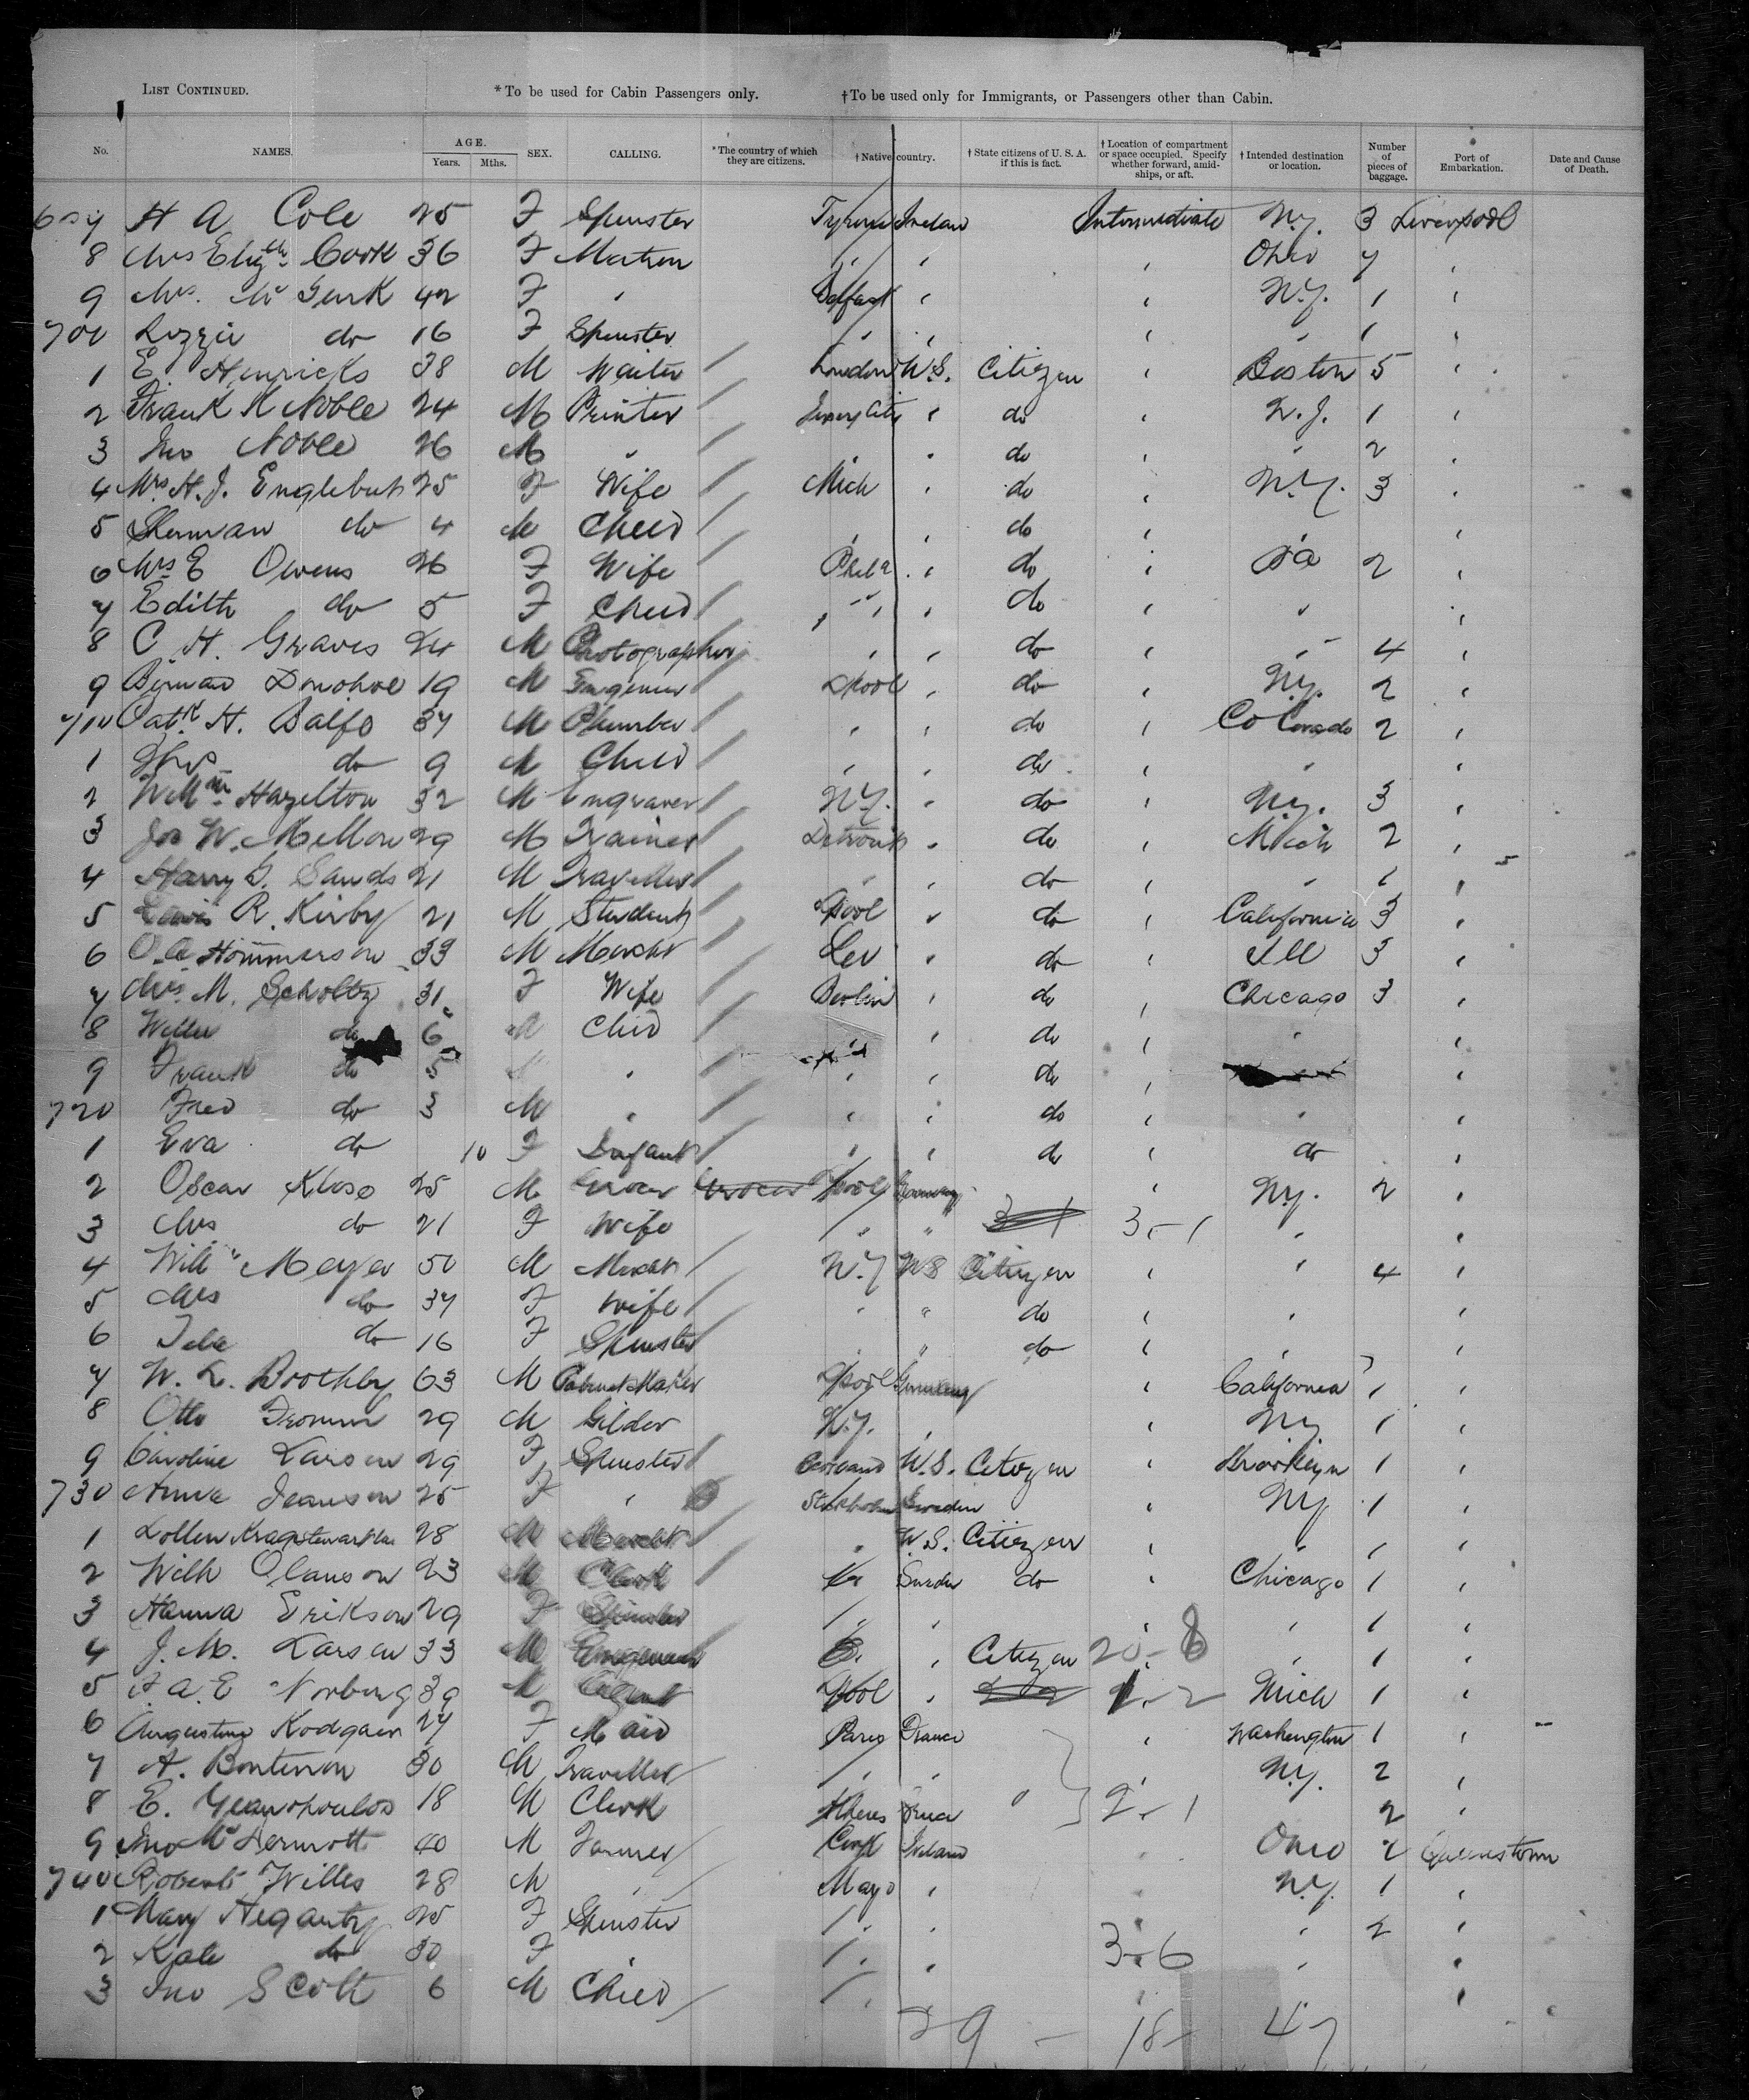 List Continued. *To be used for Cabin Passengers only. †To be used only for Immigrants, or Passengers other than Cabin.
No. NAMES. AGE. Years. Mths. SEX. CALLING. *The country of which they are citizens. †Native country. †State citizens of U. S. A. if this is fact. †Location of compartment or space occupied. Specify whether forward, amidships, or aft. †Intended destination or location. Number of pieces of baggage. Port of Embarkation. Date and Cause of Death.
H A Cole 25 F Spinster Tyrone Intermediate N.Y. 3 Liverpool
8 Mrs Elizth Cook 36 F Matron " " " Ohio 7 "
9 Mrs. Mc Gurk 42 F " Belfast " " N.Y. 1 "
700 Lizzie do 16 F Spinster " " " " 1 "
1 E. Henricks 38 M Waiter London U.S. Citizen " Boston 5 "
2 Frank H Noble 24 M Printer Jersey City " do " N.J. 1 "
3 Jno Noble 26 M " " " do " 2 "
4 Mrs H. J. 25 F Wife Mich " do " N.Y. 3 "
5 Sherman do 4 M Child " do " " "
6 Mrs E Owens 26 F Wife Phila " do " Pa 2 "
7 Edith do 5 F Child " " do " " "
8 C H. Graves 24 M Photographer " " do " " 4 "
9 Donohoe 19 M Engineer Lpool " do " N.Y. 2 "
710 Patk H. Balfe 37 M Plumber " " do " Colorado 2 "
1 do 9 M Child " " do " " "
2 Hazelton 32 M Engraver N.Y. " do " N.Y. 3 "
3 Jos W. Mellow 29 M Trainer Detroit " do " Mich 2 "
4 Harry G. Sands 21 M Traveller " " do " " 1 "
5 R. Kirby 21 M Student Lpool " do " California 3 "
6 O. A 33 M Mercht " do " Ill 3 "
7 Mrs. M. Scholtz 31 F Wife Berlin " do " Chicago 3 "
8 Willie do 6 M Child " " do " " "
9 Frank do 5 " " " do " "
720 Fred do 3 M " " " do " " "
1 Eva do 10 F Infant " " do " do "
2 Oscar Klose 25 M Lpool Germany " N.Y. 2 "
3 Mrs do 21 F Wife " " 3-1 " "
4 Will Meyer 50 M Mercht N.Y U S Citizen " " 4 "
5 Mrs do 37 F Wife " " do " " "
6 do 16 F Spinster " " do " " "
7 W. L. Boothby 63 M Cabinet Maker Lpool Germany " California 1 "
8 Otto Fromm 29 M Gilder N.Y. " " N.Y. 1 "
9 Caroline Larsen 29 F Spinster U.S. Citizen " Brooklyn 1 "
730 Anna 25 F " Stockholm Sweden " N.Y. 1 "
1 28 M Mercht " U.S. Citizen " " 1 "
2 Wilh Olauson 23 M Clerk Sweden do " Chicago 1 "
3 Hanna Erikson 29 F Spinster " " " " 1 "
4 J. M. Larsen 33 M " Citizen 20-8 " 1 "
5 A. E Norburg 39 M Lpool " 1-2 Mich 1 "
6 Augustine 27 F Maid Paris France " Washington 1 "
7 A. 30 M Traveller " " " N.Y. 2 "
8 E. 18 M Clerk Athens Greece 2-1 2 "
9 Jno McDermott 40 M Farmer Cork Ireland " Ohio 2 Queenstown
740 Robert Willes 28 M " Mayo " " N.Y. 1 "
1 Mary Hegarty 25 F Spinster " " " " 2 "
2 Kate do 30 F " " " 3-6 " "
3 Jno Scott 6 M Child " " " "
29 - 18 - 47